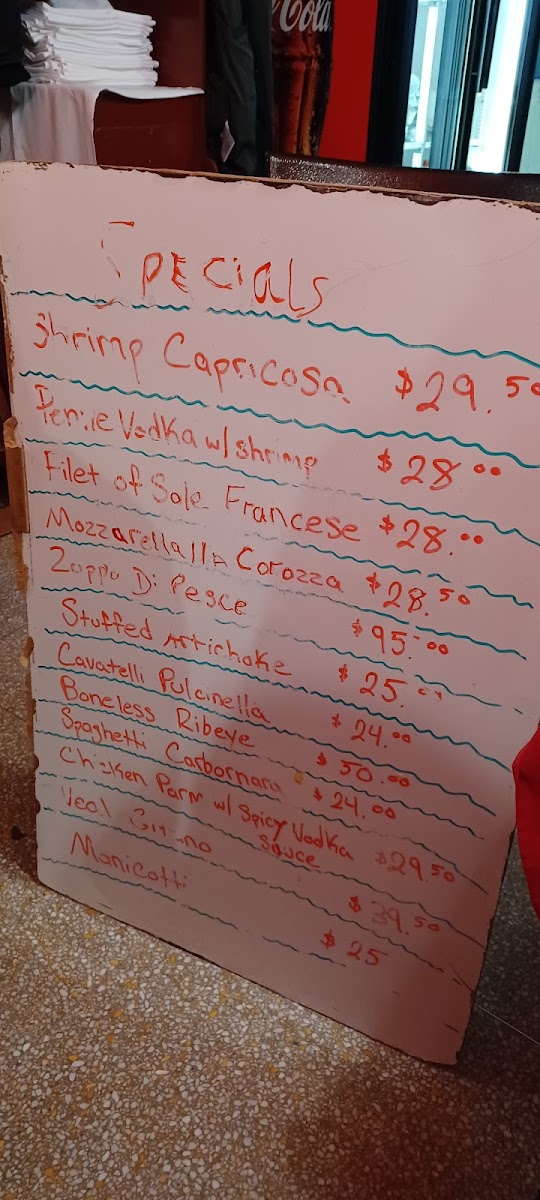 Cola
Specials
Shrimp Capricosa $29.50
Penne Vodka w/ shrimp $28.00
Filet of Sole Francese $28.00
Mozzarella In Corozza $28.50
Zuppa Di Pesce $95.00
Stuffed Artichoke $25.00
Cavatelli Pulcinella $24.00
Boneless Ribeye $50.00
Spaghetti Carbornara $24.00
Chicken Parm w/ Spicy Vodka Sauce $29.50
Veal $39.50
Manicotti $25